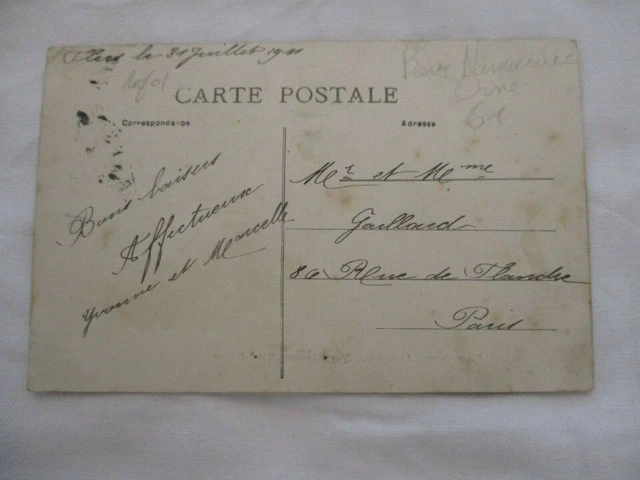 Flers le 31 Juillet 1911
CARTE POSTALE
Correspondance
Adresse
Orne
61
Bons baisers
Affectueux
Yvonne et Marcelle
Mr et Mme
Gaillard
80 Rue de Flandre
Paris